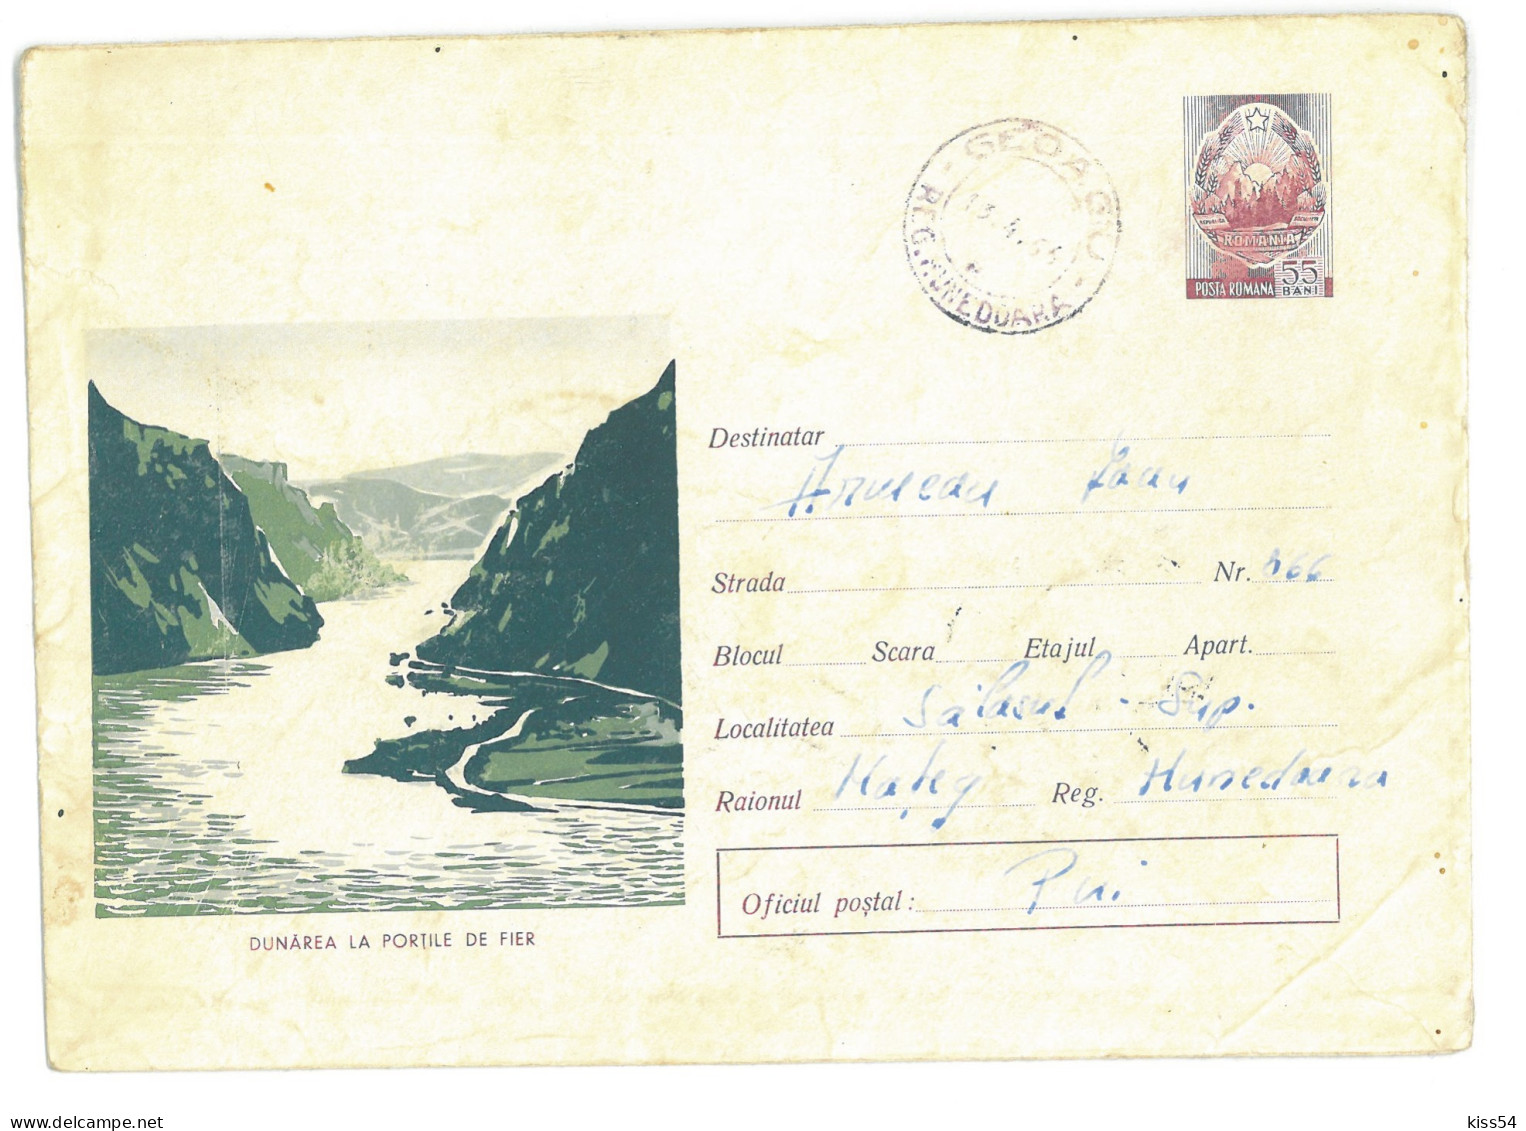 GEOAGIU
REG. HUNEDOARA
ROMANIA
POSTA ROMANA 55 BANI
Destinatar
Armean Ioan
Strada Nr. 166
Blocul Scara Etajul Apart.
Localitatea Sălașul-Sup.
Raionul Hațeg Reg. Hunedoara
Oficiul poștal: Pui
DUNĂREA LA PORȚILE DE FIER
delcampe.net
kiss54